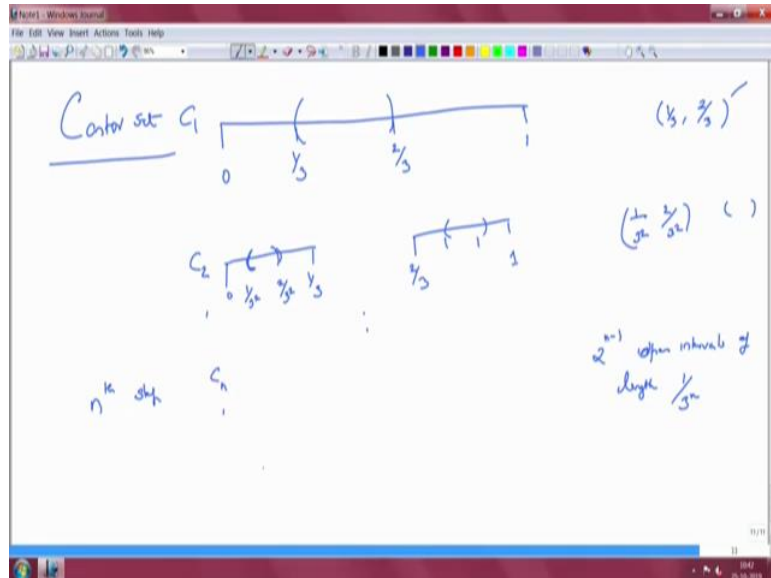 Note1 - Windows Journal
File Edit View Insert Actions Tools Help
Cantor set C₁ 0 1/3 2/3 1 (1/3, 2/3) ✓
C₂ 0 1/3² 2/3² 1/3 2/3 1 (1/3² 2/3²) ( )
nth step Cₙ 2ⁿ⁻¹ open intervals of
length 1/3ⁿ
11/11
11
10:42